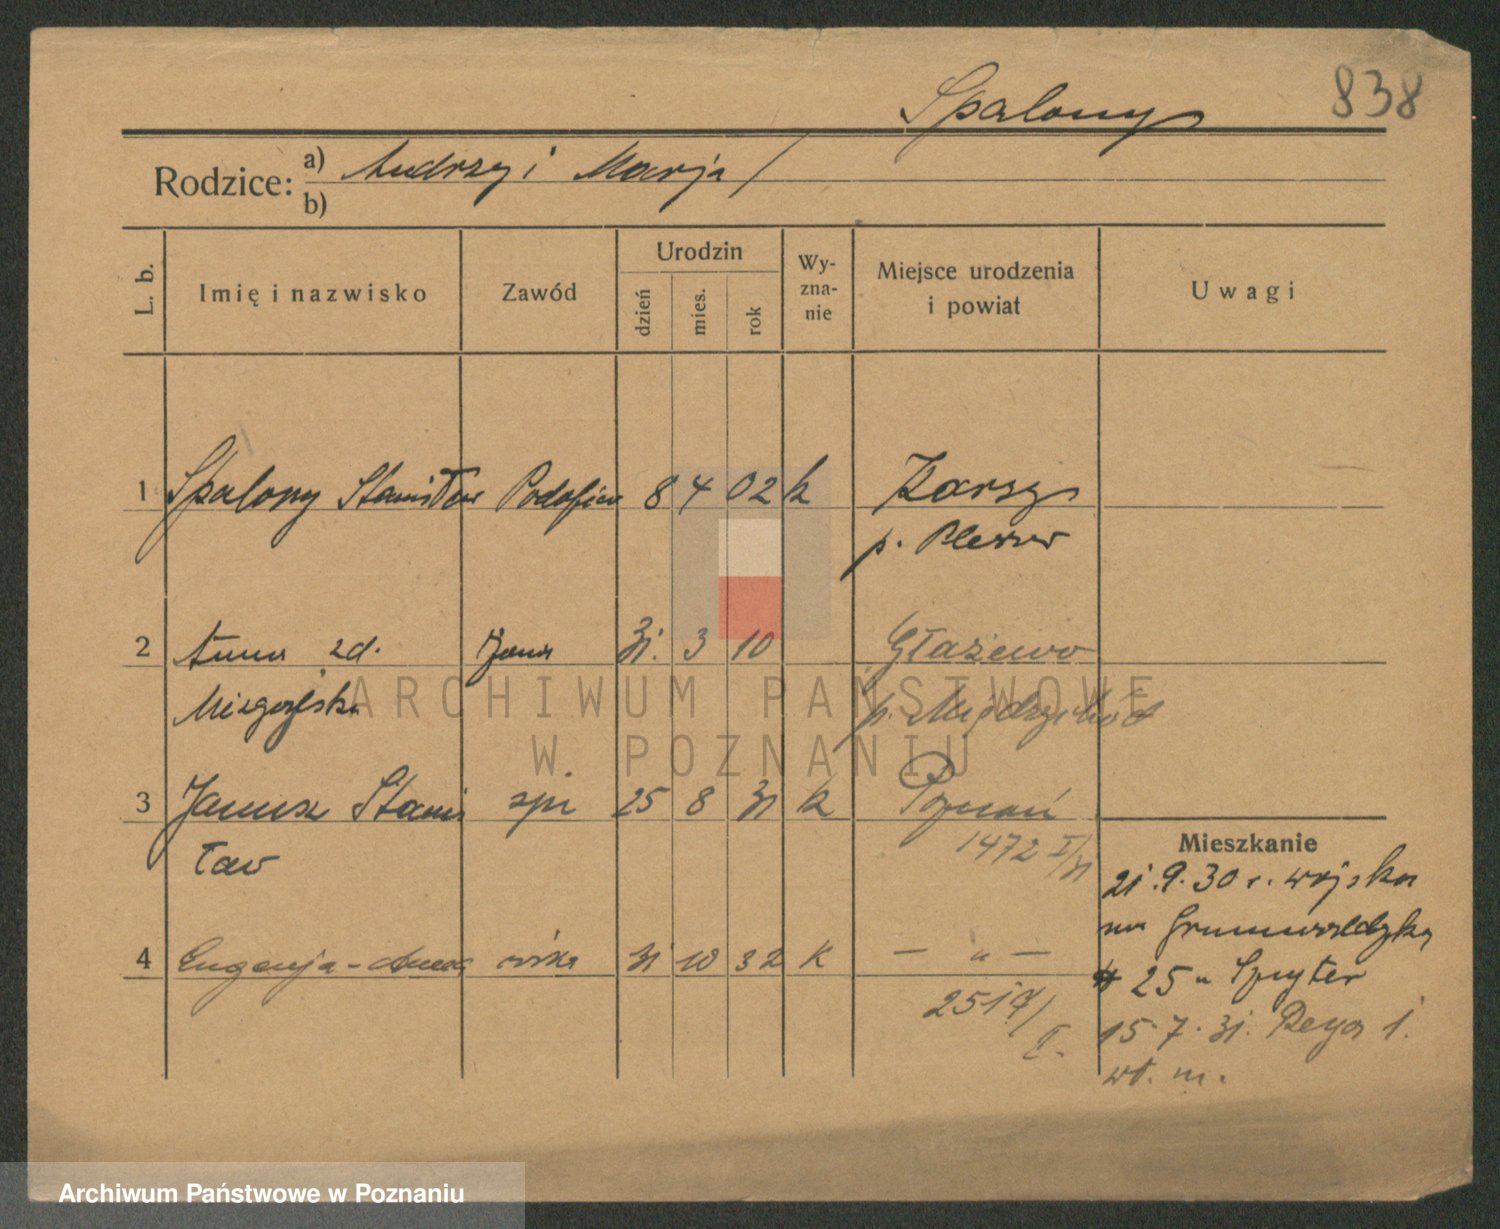 Spalony 838
Rodzice: a) Andrzej i Marja /
b)
L. b. Imię i nazwisko Zawód Urodzin dzień mies. rok Wy-zna-nie Miejsce urodzenia i powiat Uwagi
1 Spalony Stanisław Podofice 8 4 02 k Karsy
p. Pleszew
2 Anna zd. żona 31. 3 10 Głażewo
p. Międzychód
ARCHIWUM PAŃSTWOWE
W POZNANIU
3 Janusz Stanis syn 25 8 31 k Poznań
ław 1472 I/31
Mieszkanie
21.9.30 r. wojska
na Grunwaldzką
4 Eugenja-Anna córka 31 10 32 k — " —
25 u Spryter
2517/
I.
15.7.31. Reya 1.
wł. m.
Archiwum Państwowe w Poznaniu